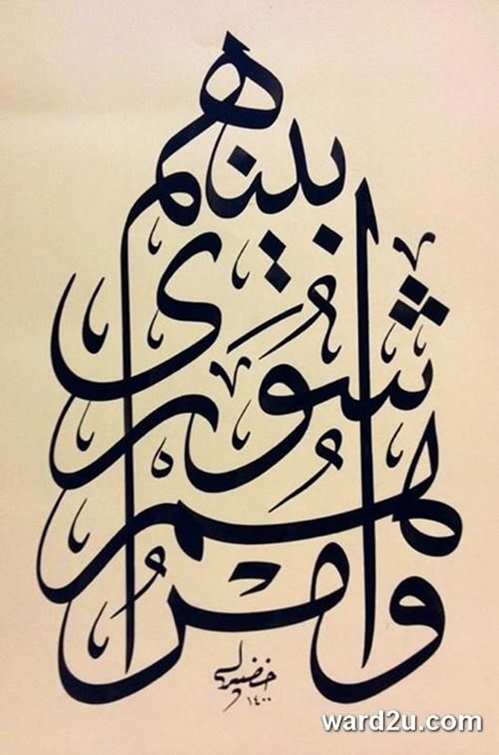 وَأَمْرُهُمْ
شُورَىٰ
بَيْنَهُمْ
خضير
١٤٠٠
ward2u.com